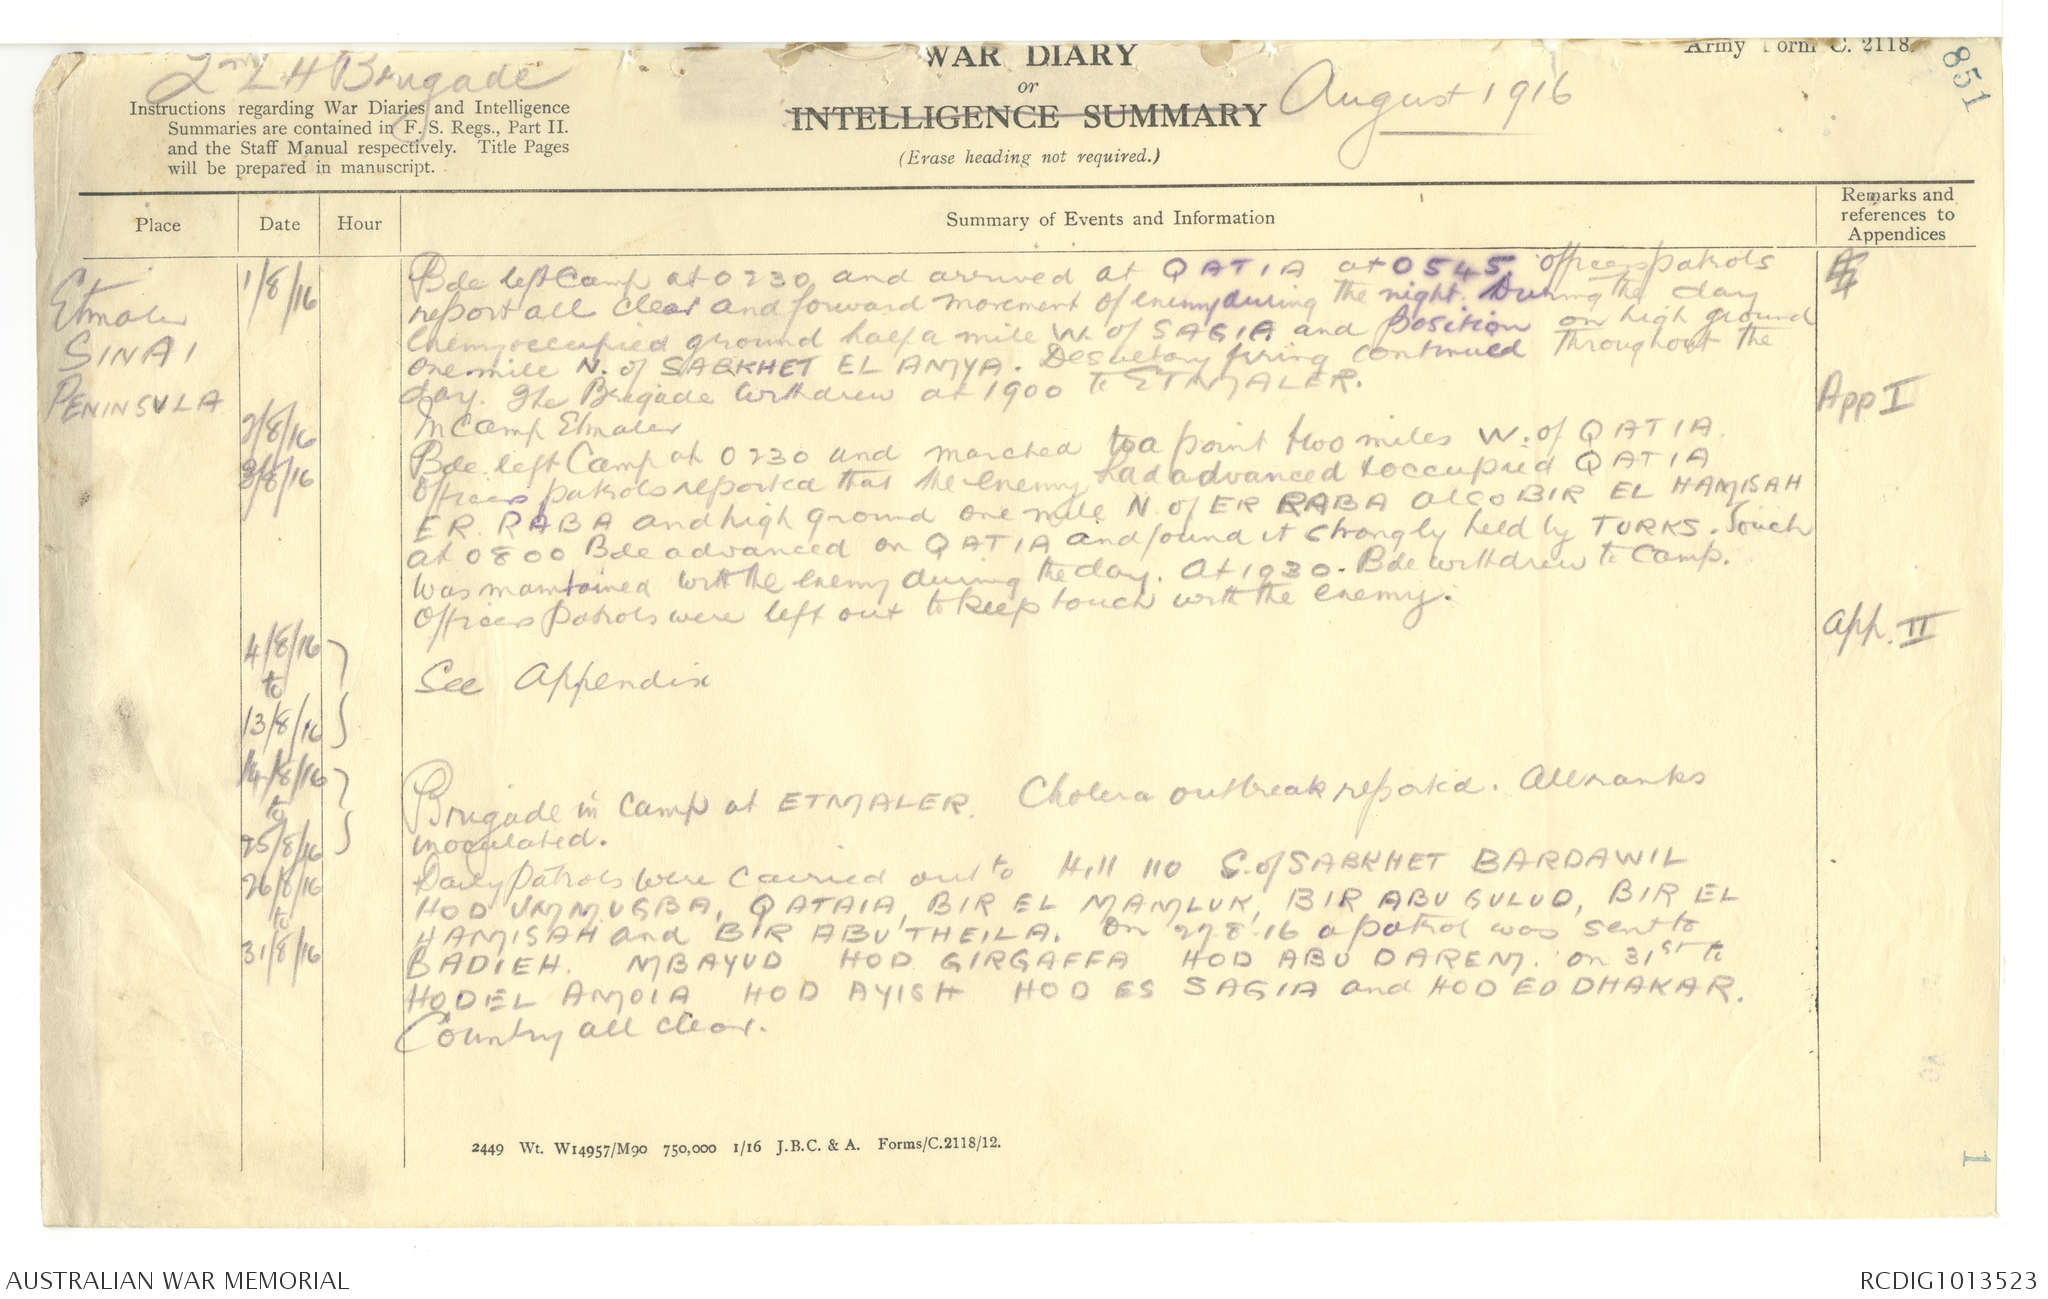 2nd L H Brigade
WAR DIARY
or
INTELLIGENCE SUMMARY
(Erase heading not required.)
August 1916
Army Form C. 2118.
851
Instructions regarding War Diaries and Intelligence
Summaries are contained in F. S. Regs., Part II.
and the Staff Manual respectively. Title Pages
will be prepared in manuscript.
Place
Date
Hour
Summary of Events and Information
Remarks and
references to
Appendices
Etmaler
SINAI
PENINSULA
1/8/16
Bde left Camp at 0230 and arrived at QATIA at 0545. Officers patrols
report all clear and forward movement of enemy during the night. During the day
Enemy occupied ground half a mile W. of SAGIA and position on high ground
one mile N. of SABKHET EL AMYA. Desultory firing continued throughout the
day. The Brigade withdrew at 1900 to ETMALER.
App I
2/8/16
In Camp Etmaler
3/8/16
Bde left Camp at 0230 and marched to a point two miles W. of QATIA.
Officers patrols reported that the enemy had advanced & occupied QATIA
ER RABA and high ground one mile N. of ER RABA also BIR EL HAMISAH
at 0800 Bde advanced on QATIA and found it strongly held by TURKS. Touch
was maintained with the enemy during the day. At 1930 - Bde withdrew to Camp.
Officers patrols were left out to keep touch with the enemy.
4/8/16
to
13/8/16
See Appendix
App. II
14/8/16
to
25/8/16
Brigade in Camp at ETMALER. Cholera outbreak reported. All ranks
inoculated.
26/8/16
to
31/8/16
Daily patrols were carried out to Hill 110 S. of SABKHET BARDAWIL
HOD UMMUGBA, QATAIA, BIR EL MAMLUK, BIR ABU GULUD, BIR EL
HAMISAH and BIR ABU THEILA. On 27.8.16 a patrol was sent to
BADIEH. MBAYUD HOD GIRGAFFA HOD ABU DAREM. On 31st to
HOD EL AMOIA HOD AYISH HOD ES SAGIA and HOD ED DHAKAR.
Country all clear.
2449 Wt. W14957/M90 750,000 1/16 J.B.C. & A. Forms/C.2118/12.
1
AUSTRALIAN WAR MEMORIAL
RCDIG1013523